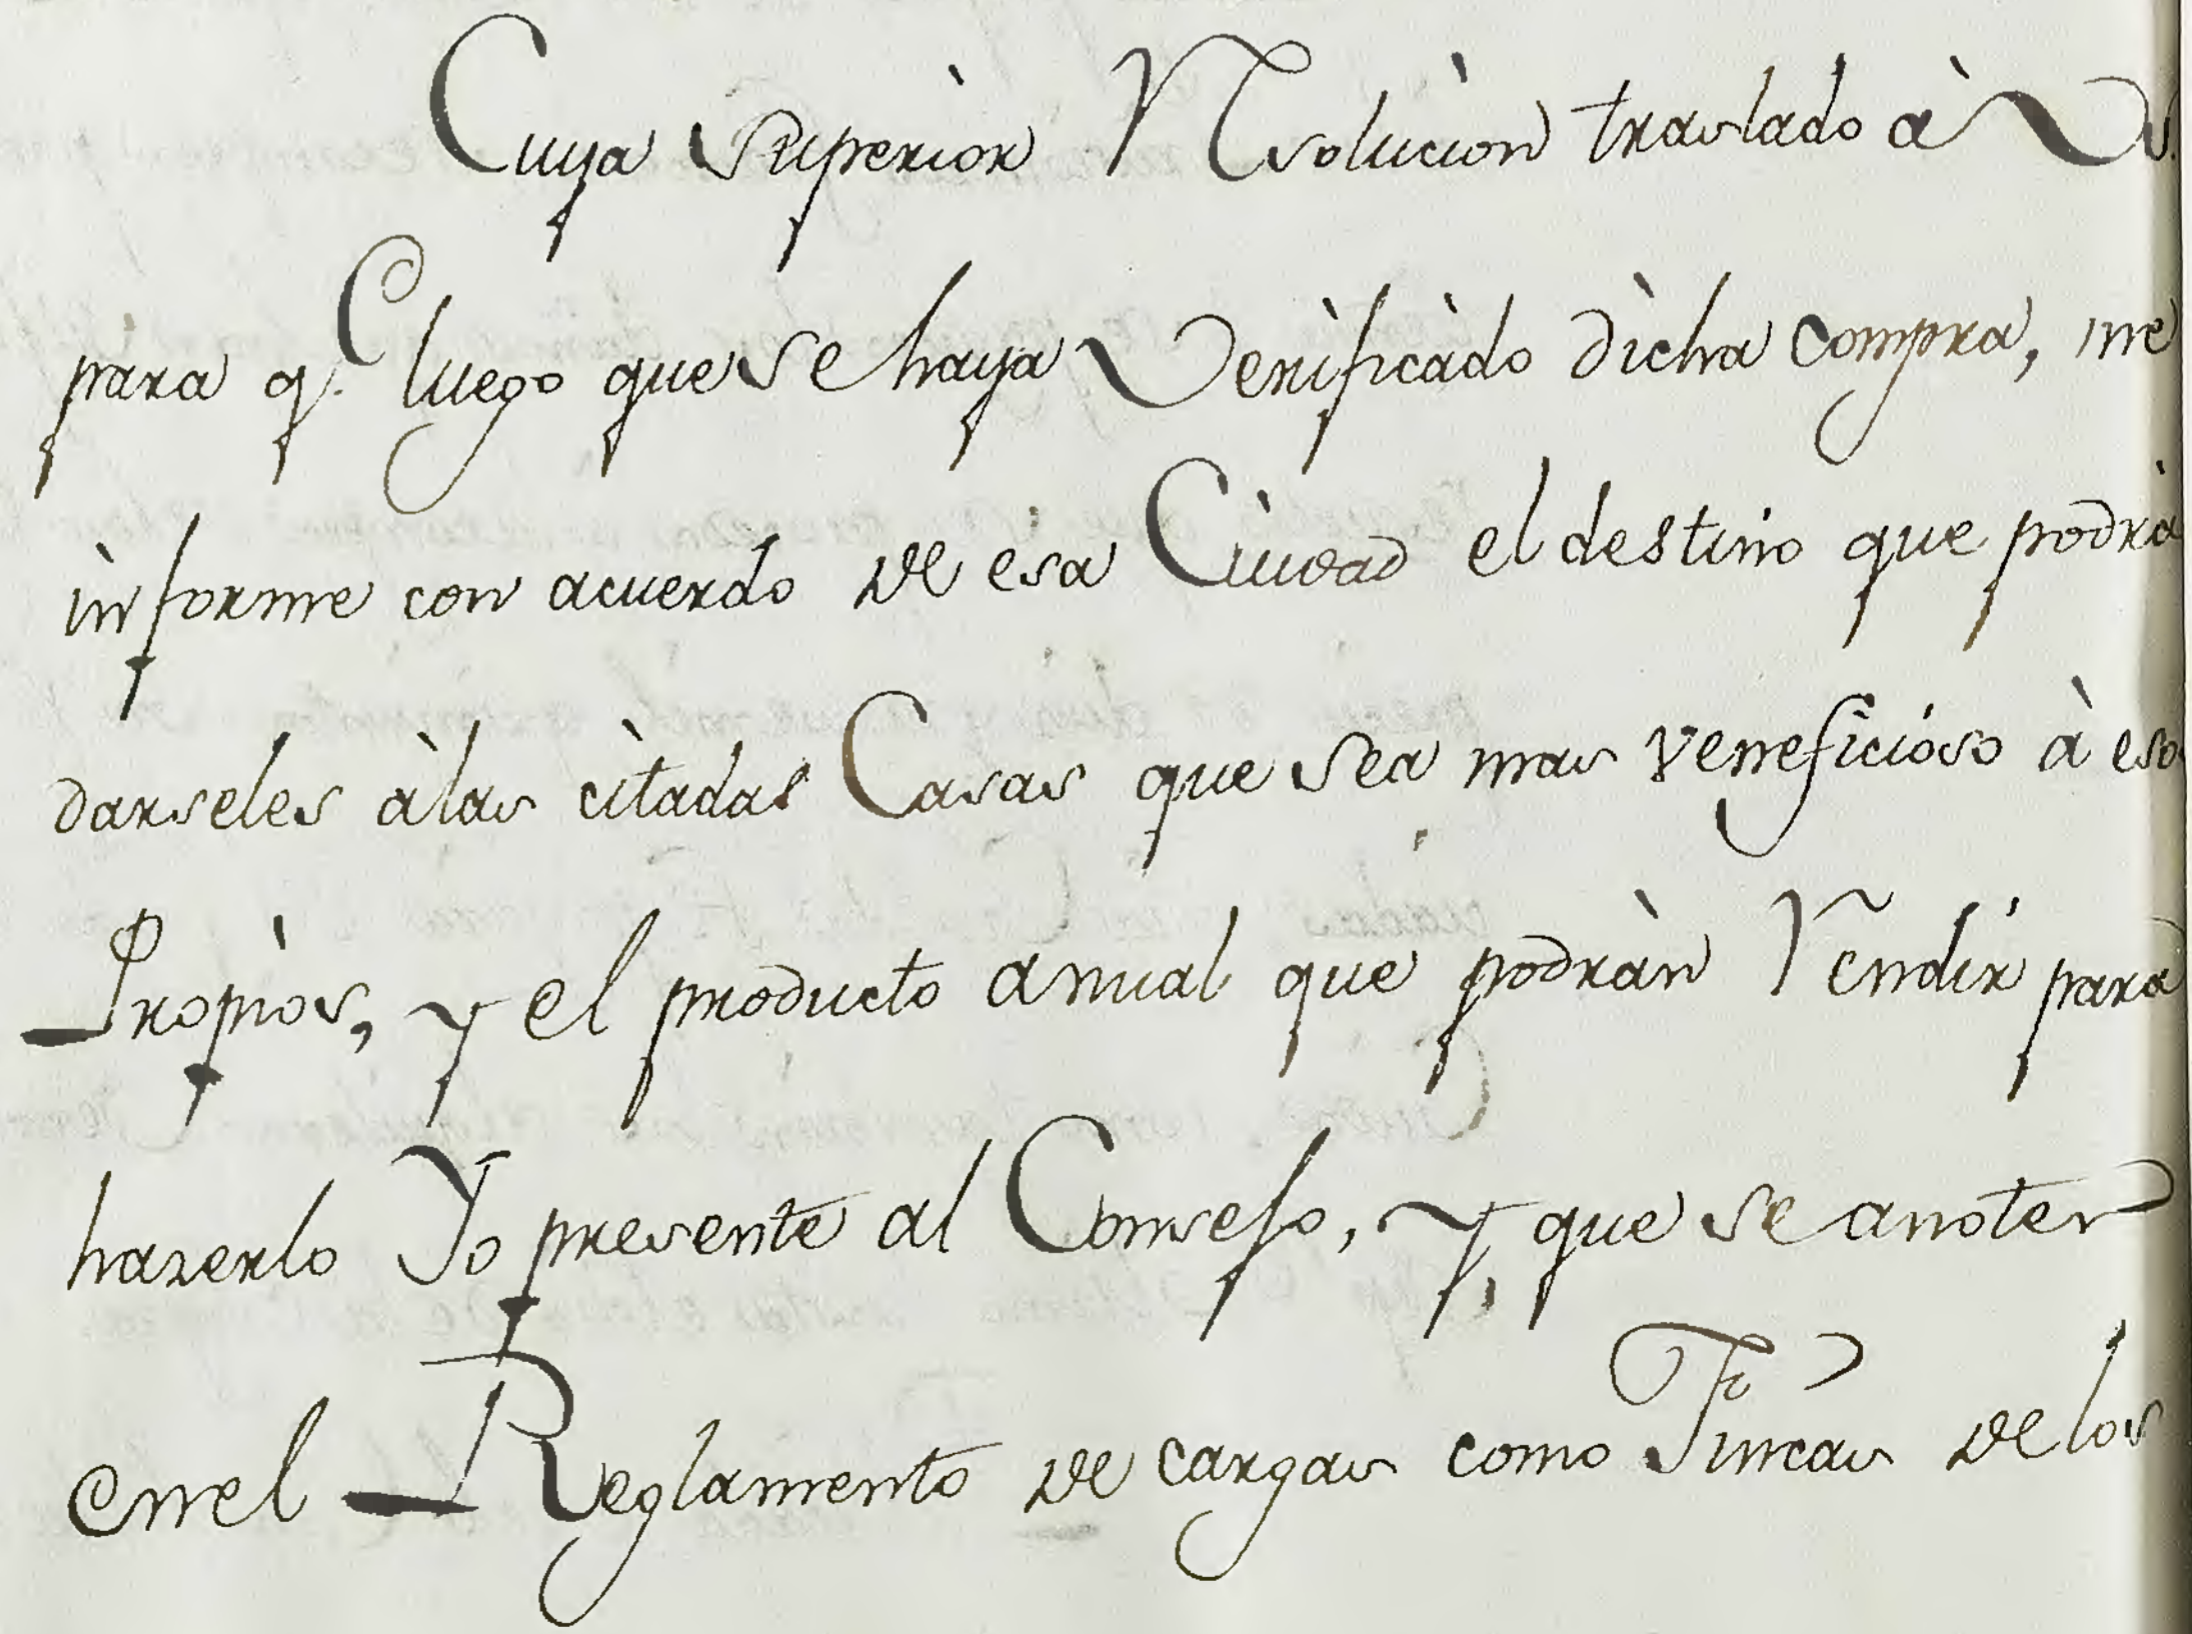 Cuya superìor Resolucìon traslado à Vs.
para q.e luego que se haya Verìficàdo dìcha compra, me
ìnforme con acuerdo de esa Cìudad el destino que podrà
darseles àlas cìtadas Casas que sea mas veneficioso à esos
Propìos, y el producto anual que podràn Rendir para
hazerlo Yo presente al Consejo, y que se anoten
enel Reglamento de cargas como Fincas de los